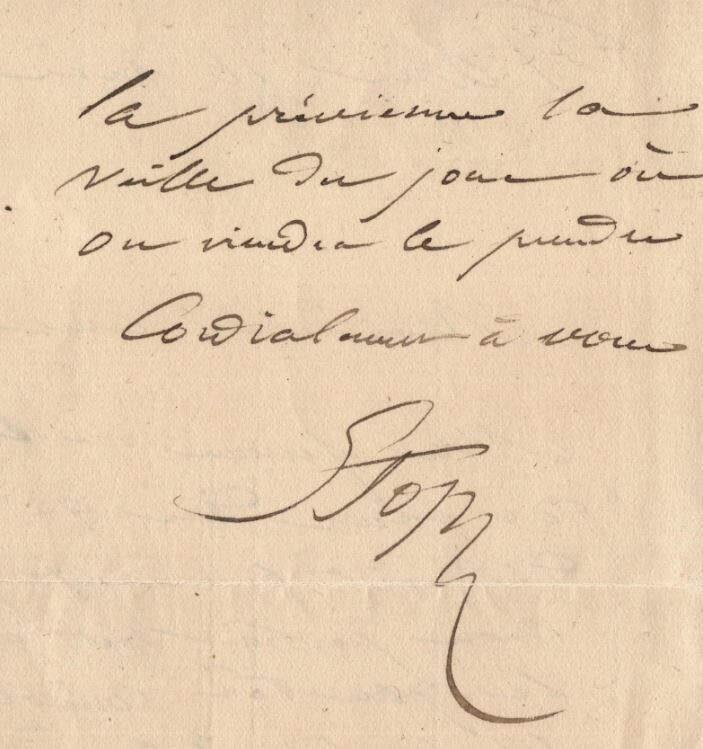 la prévienne la
veille du jour où
on viendra le prendre
Cordialement à vous
Stop